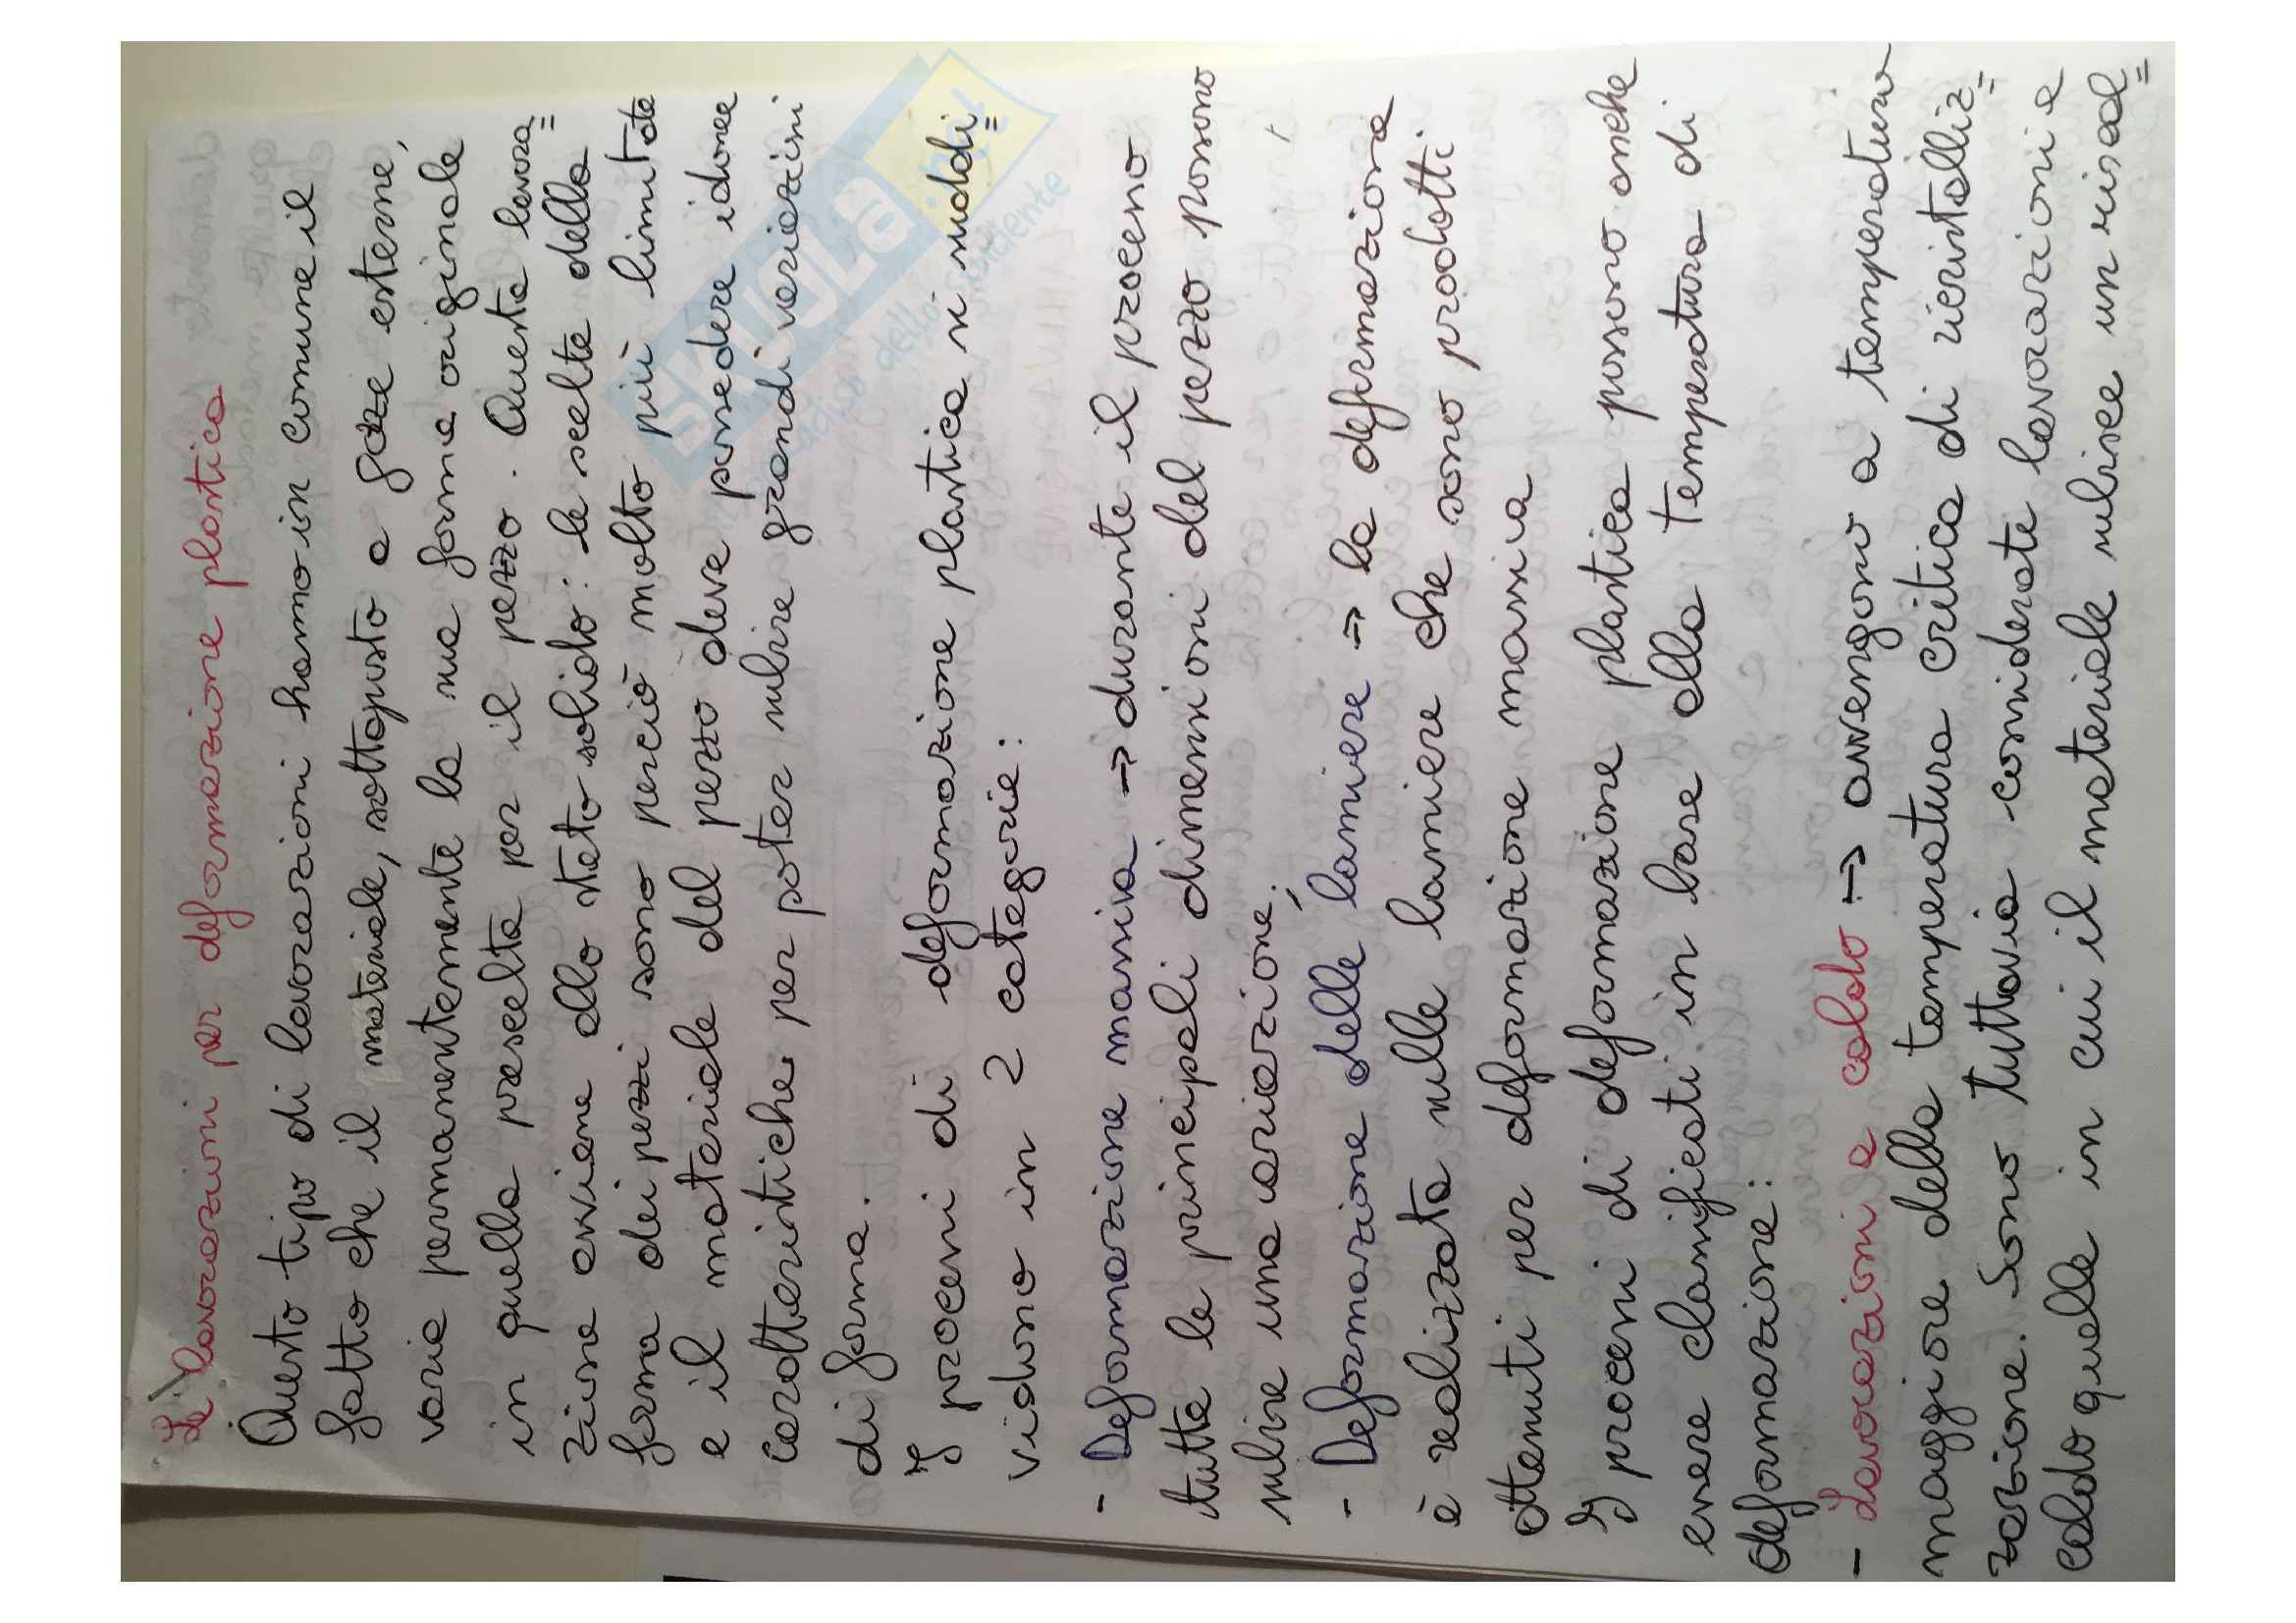 Le lavorazioni per deformazione plastica
Questo tipo di lavorazioni hanno in comune il
fatto che il materiale, sottoposto a forze esterne,
varia permanentemente la sua forma originale
in quella prescelta per il pezzo. Questa lavora=
zione avviene allo stato solido: la scelta della
forma dei pezzi sono perciò molto più limitate
e il materiale del pezzo deve possedere idonee
caratteristiche per poter subire grandi variazioni
di forma.
I processi di deformazione plastica si suddi=
vidono in 2 categorie:
- Deformazione massiva → durante il processo
tutte le principali dimensioni del pezzo possono
subire una variazione.
- Deformazione delle lamiere → la deformazione
è realizzata sulle lamiere che sono prodotti
ottenuti per deformazione massiva
I processi di deformazione plastica possono anche
essere classificati in base alla temperatura di
deformazione:
- Lavorazioni a caldo → avvengono a temperatura
maggiore della temperatura critica di ricristalliz=
zazione. Sono tuttavia considerate lavorazioni a
caldo quelle in cui il materiale subisce un riscal=
SKUOLA.net